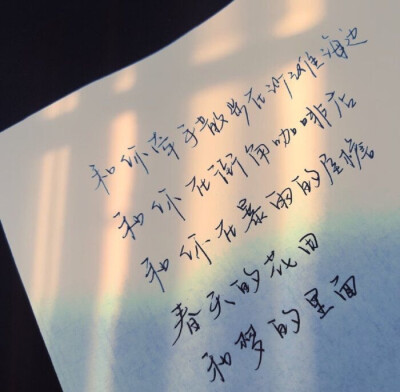 和你牵手散步在沙滩海边
和你在街角咖啡店
和你在暴雨的屋檐
春天的花田
和梦的里面